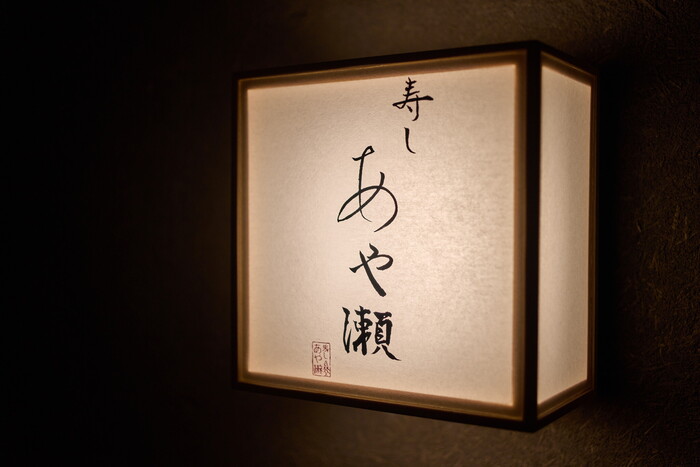 寿し
あや瀬
あや瀬